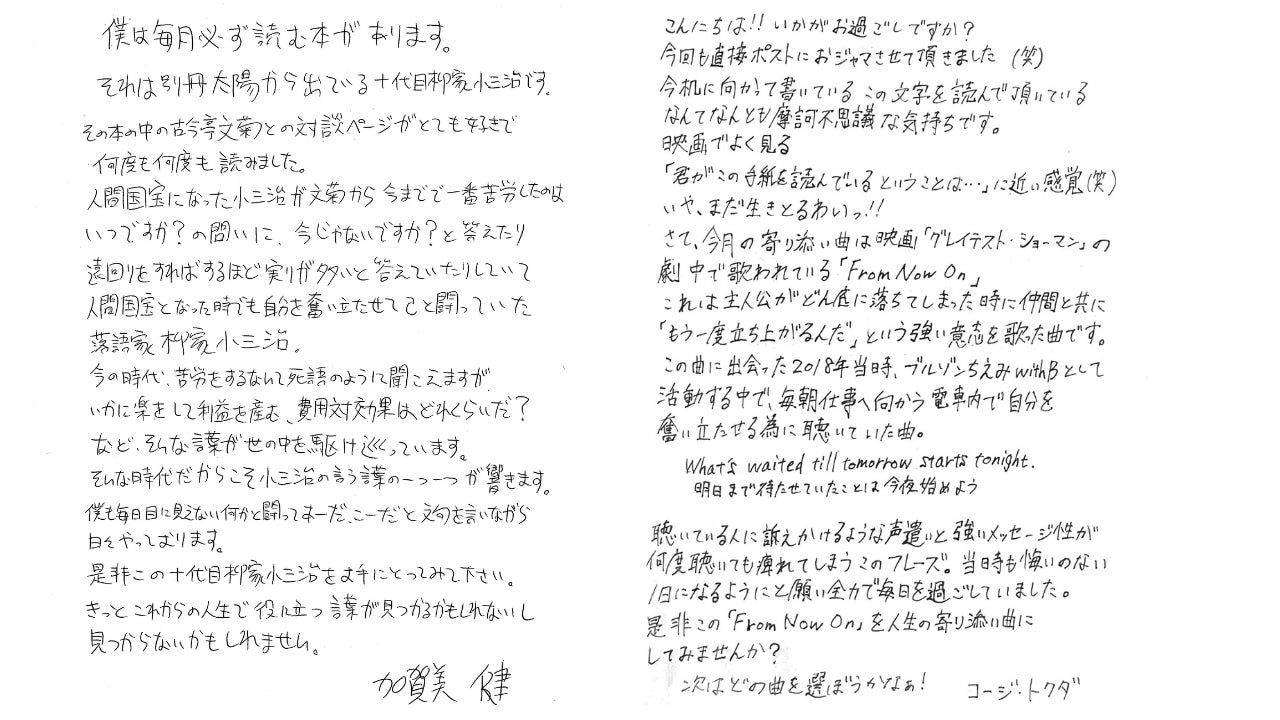 僕は毎月必ず読む本があります。
それは別冊太陽から出ている十代目柳家小三治です。
その本の中の古今亭文菊との対談ページがとても好きで
何度も何度も読みました。
人間国宝になった小三治が文菊から今までで一番苦労したのは
いつですか?の問いに、今じゃないですか?と答えたり
遠回りをすればするほど実りが多いと答えていたりしていて
人間国宝となった時でも自分を奮い立たせて己と闘っていた
落語家 柳家小三治。
今の時代、苦労をするなんて死語のように聞こえますが
いかに楽をして利益を産む、費用対効果は、どれくらいだ?
など、そんな言葉が世の中を駆け巡っています。
そんな時代だからこそ小三治の言う言葉の一つ一つが響きます。
僕も毎日目に見えない何かと闘ってあーだ、こーだと文句を言いながら
日々やっております。
是非この十代目柳家小三治をお手にとってみて下さい。
きっとこれからの人生で役に立つ言葉が見つかるかもしれないし
見つからないかもしれません。
加賀美 健
こんにちは!! いかがお過ごしですか?
今回も直接ポストにおジャマさせて頂きました (笑)
今机に向かって書いているこの文字を読んで頂いている
なんてなんとも摩訶不思議な気持ちです。
映画でよく見る
「君がこの手紙を読んでいるということは…」に近い感覚(笑)
いや、まだ生きとるわいっ!!
さて、今月の寄り添い曲は映画「グレイテスト・ショーマン」の
劇中で歌われている「From Now On」
これは主人公がどん底に落ちてしまった時に仲間と共に
「もう一度立ち上がるんだ」という強い意志を歌った曲です。
この曲に出会った2018年当時、ブルゾンちえみwithBとして
活動する中で、毎朝仕事へ向かう電車内で自分を
奮い立たせる為に聴いていた曲。
What's waited till tomorrow starts tonight.
明日まで待たせていたことは今夜始めよう
聴いている人に訴えかけるような声遣いと強いメッセージ性が
何度聴いても痺れてしまうこのフレーズ。当時も悔いのない
1日になるようにと願い全力で毎日を過ごしていました。
是非この「From Now On」を人生の寄り添い曲に
してみませんか?
次はどの曲を選ぼうかなぁ! コージ・トクダ